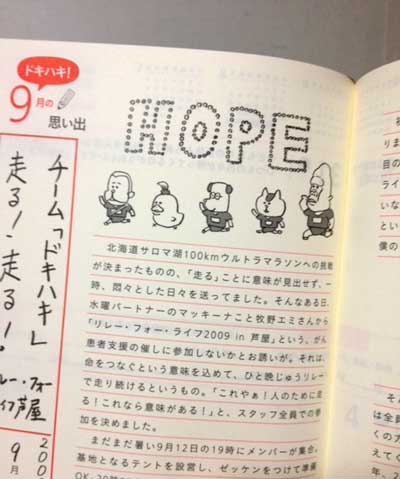 ドキハキ!
9月の
思い出
HOPE
チーム「ドキハキ」
走る！走る！
リレー・フォー
イフ芦屋
200
9月
北海道サロマ湖100kmウルトラマラソンへの挑戦
が決まったものの、「走る」ことに意味が見出せず、一
時、悶々とした日々を送ってました。そんなある日、
水曜パートナーのマッキーナこと牧野エミさんから
「リレー・フォー・ライフ2009 in 芦屋」という、がん
患者支援の催しに参加しないかとお誘いが。それは、
命をつなぐという意味を込めて、ひと晩じゅうリレー
で走り続けるというもの。「これやぁ！人のために走
る！これなら意味がある！」と、スタッフ全員での参
加を決めました。
まだまだ暑い9月12日の19時にメンバーが集合。
基地となるテントを設営し、ゼッケンをつけて準備
りま
目の
ライ
いな
とい
僕の
そ
は全
くの
えてく